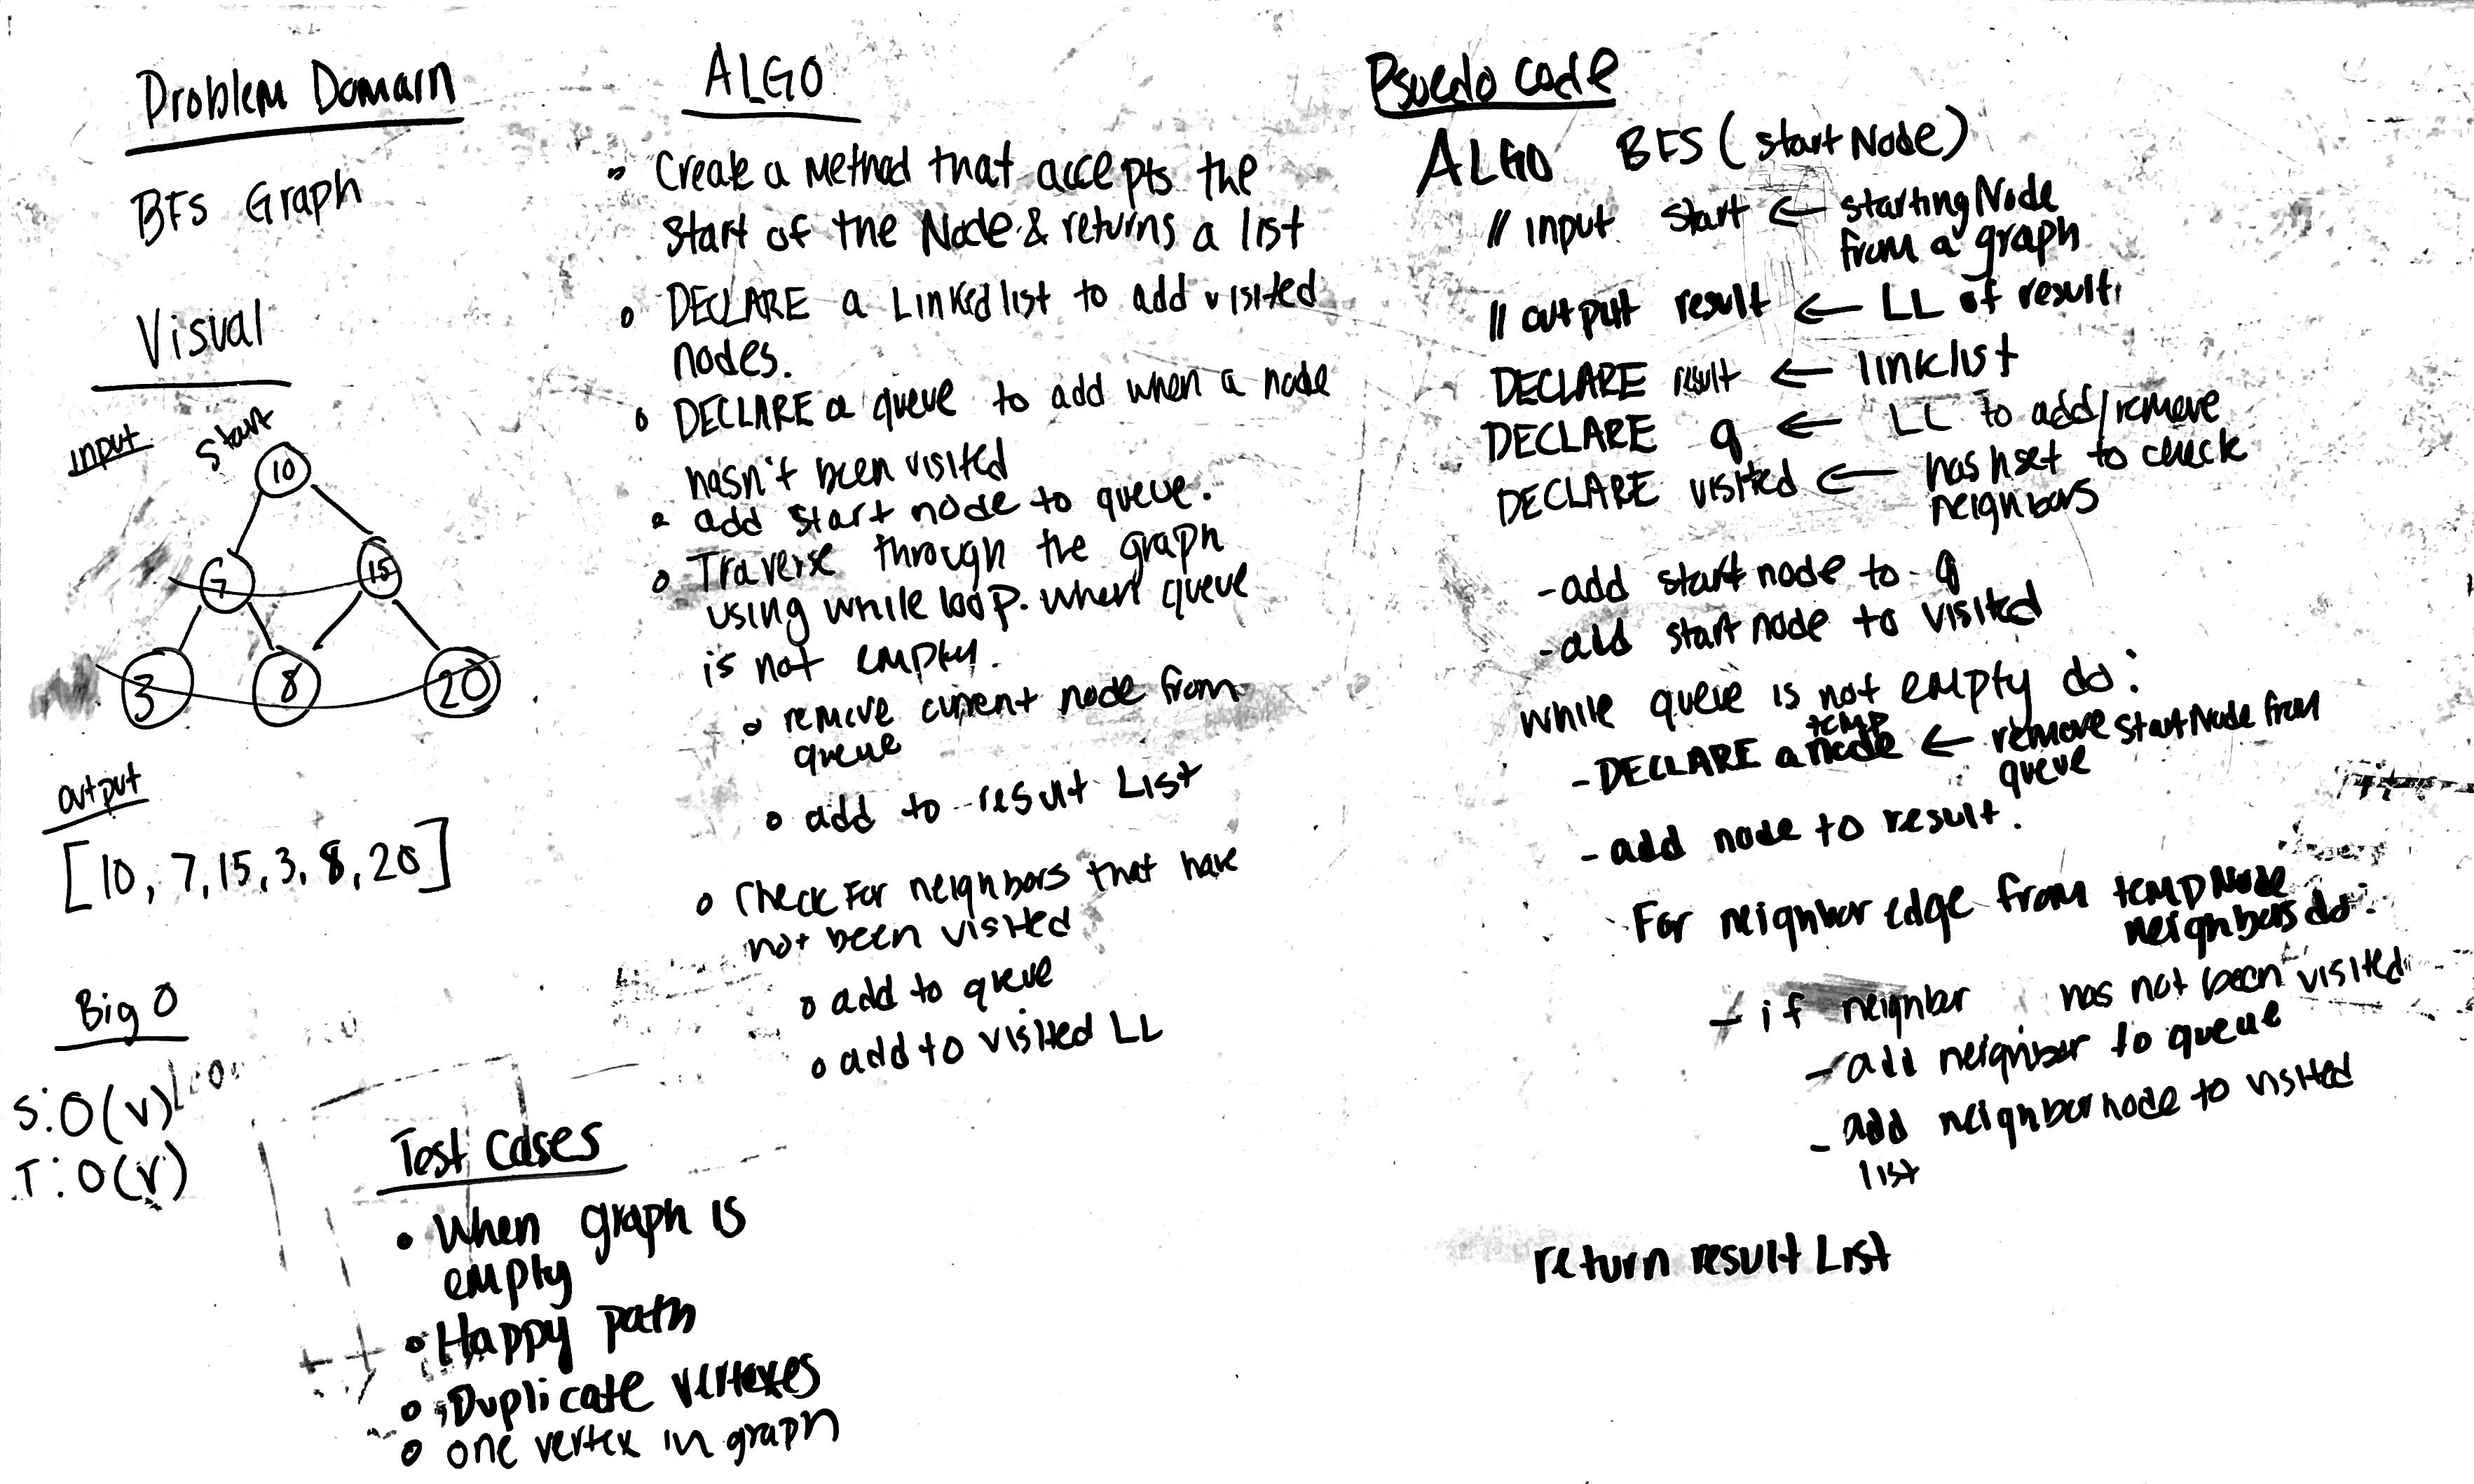 Problem Domain
BFS Graph
Visual
input
start
10
7
15
3
8
20
output
[10, 7, 15, 3, 8, 20]
Big O
S: O(v)
T: O(v)
ALGO
Create a Method that accepts the
start of the Node & returns a list
DECLARE a Linked list to add visited
nodes.
DECLARE a queue to add when a node
hasn't been visited
add start node to queue.
Traverse through the graph
using while loop. when queue
is not empty.
remove current node from
queue
add to result List
Check For neighbors that have
not been visited
add to queue
add to visited LL
Test Cases
When graph is
empty
Happy path
Duplicate vertexes
one vertex in graph
Psuedo code
ALGO BFS (startNode)
// input start ← startingNode
from a graph
// output result ← LL of result
DECLARE result ← linklist
DECLARE q ← LL to add/remove
DECLARE visited ← hashset to check
neighbors
- add start node to q
- add start node to visited
while queue is not empty do:
- DECLARE a temp node ← remove startNode from
queue
- add node to result.
For neighbor edge from tempNode
neighbors do:
- if neighbor has not been visited
- add neighbor to queue
- add neighbor node to visited
list
return result List